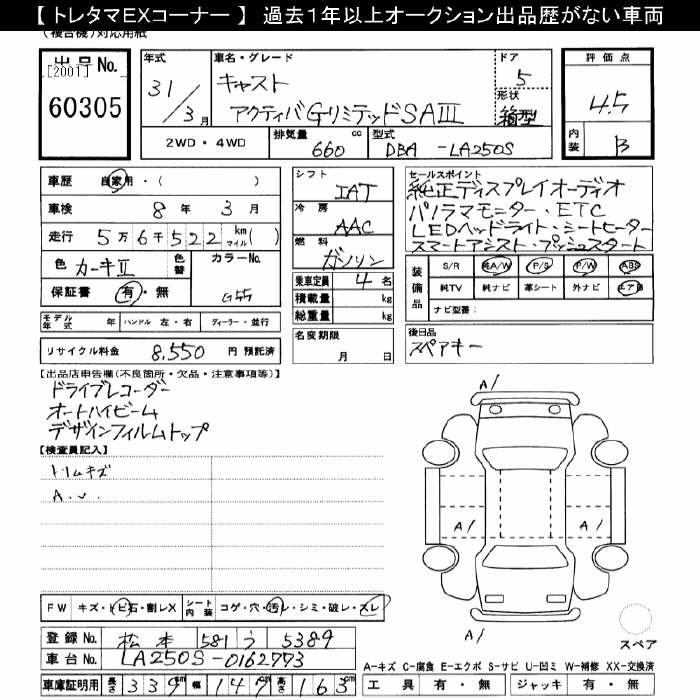 【 トレタマEXコーナー 】 過去1年以上オークション出品歴がない車両
(複合機)対応用紙
出品No.
[2001]
60305
年式
31/3月
車名・グレード
キャスト
アクティバGリミテッドSAIII
ドア
5
形状
箱型
評価点
4.5
内装
B
2WD・4WD
排気量
660 cc
型式
DBA -LA250S
車歴 自家用・( )
車検 8年 3月
走行 5万6千522 km マイル( )
色 カーキII 色替
カラーNo.
G55
保証書 有・無
モデル年式 年 ハンドル 左・右 ディーラー・並行
リサイクル料金 8,550 円 預託済
シフト
IAT
冷房
AAC
燃料
ガソリン
乗車定員 4名
積載量 kg
総重量 kg
名変期限
月 日
セールスポイント
純正ディスプレイオーディオ
パノラマモニター・ETC
LEDヘッドライト・シートヒーター
スマートアシスト・プッシュスタート
装備品
S/R 純A/W P/S P/W ABS
純TV 純ナビ 革シート 外ナビ エアB
ナビ型番:
後日品
スペアキー
【出品店申告欄(不良箇所・欠品・注意事項等)】
ドライブレコーダー
オートハイビーム
デザインフィルムトップ
【検査員記入】
トリムキズ
A.
A/
A/
A/
A/
スペア
FW キズ・トビ石・割レX
シート内装 コゲ・穴・汚レ・シミ・破レ・スレ
登録No. 松本 581 う 5389
車台No. LA250S-0162773
車庫証明用 長さ 339cm 幅 147cm 高さ 163cm
A-キズ C-腐食 E-エクボ S-サビ U-凹ミ W-補修 XX-交換済
工具 有・無 ジャッキ 有・無